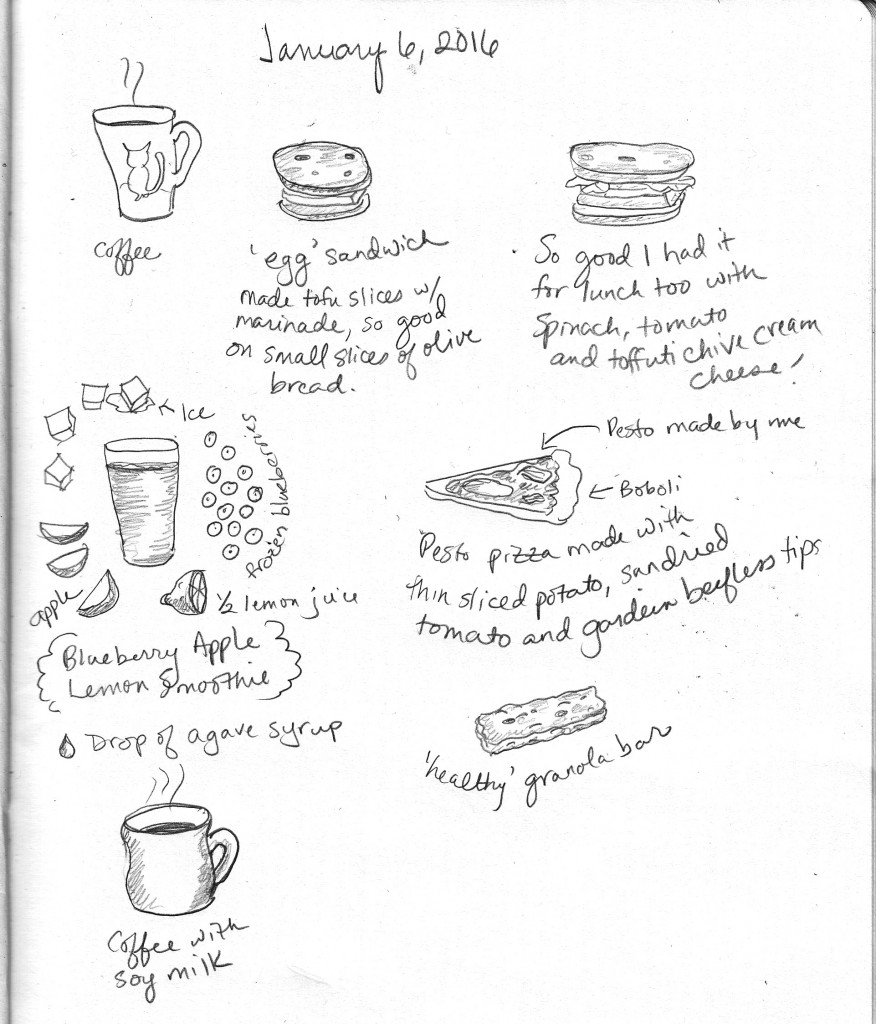 January 6, 2016
coffee
'egg' sandwich
made tofu slices w/
marinade, so good
on small slices of olive
bread.
So good I had it
for lunch too with
Spinach, tomato
and toffuti chive cream
cheese!
Ice
frozen blueberries
apple
1/2 lemon juice
Blueberry Apple
Lemon Smoothie
Drop of agave syrup
Pesto made by me
Boboli
Pesto pizza made with
thin sliced potato, sundried
tomato and gardein beefless tips
'healthy' granola bar
Coffee with
soy milk